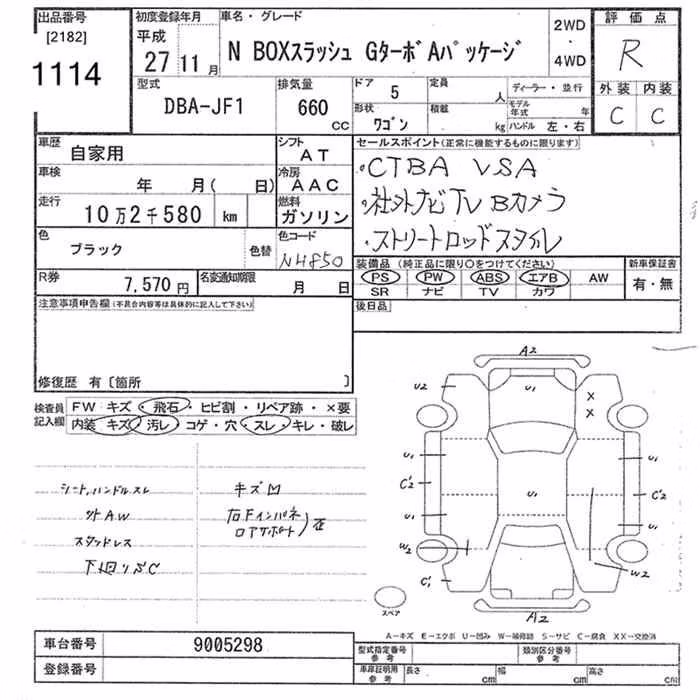 出品番号 初度登録年月 車名・グレード 評価点
[2182] 平成
1114 27 11月 N BOXスラッシュ GターボAパッケージ 2WD・4WD R
型式 排気量 ドア 定員 ディーラー・並行 外装 内装
DBA-JF1 660 CC 5 人 モデル年式 年 C C
形状 積載
ワゴン kg ハンドル 左・右
車歴 自家用 シフト AT セールスポイント(正常に機能するものに限ります)
車検 年 月( 日) 冷房 AAC ・CTBA VSA
走行 10万2千580 km 燃料 ガソリン ・社外ナビTV Bカメラ
色 ブラック 色替 色コード NH850 ・ストリートロッドスタイル
R券 7,570円 名変通知期限 月 日
装備品(純正品に限り○をつけてください) 新車保証書
PS PW ABS エアB AW 有・無
SR ナビ TV カワ
注意事項申告欄(不具合内容等は具体的に記入して下さい) 後日品
修復歴 有〔箇所 〕
検査員記入欄 FW キズ・飛石・ヒビ割・リペア跡・×要
内装 キズ・汚レ・コゲ・穴・スレ・キレ・破レ
シート,ハンドルスレ キズ凹
外AW 右Fインパネ
スタッドレス ロアサポート
下廻りSC
A2
U2 U1 X
X
U1 U1
C'2 U1 C'2
U1 U1
W2 W2
C'1
A2
スペア
A-キズ E-エクボ U-凹み W-補修跡 S-サビ C-腐食 XX-交換済
車台番号 9005298 型式指定番号 参考 類別区分番号 参考
登録番号 車庫証明用 参考 長さ cm 幅 cm 高さ cm